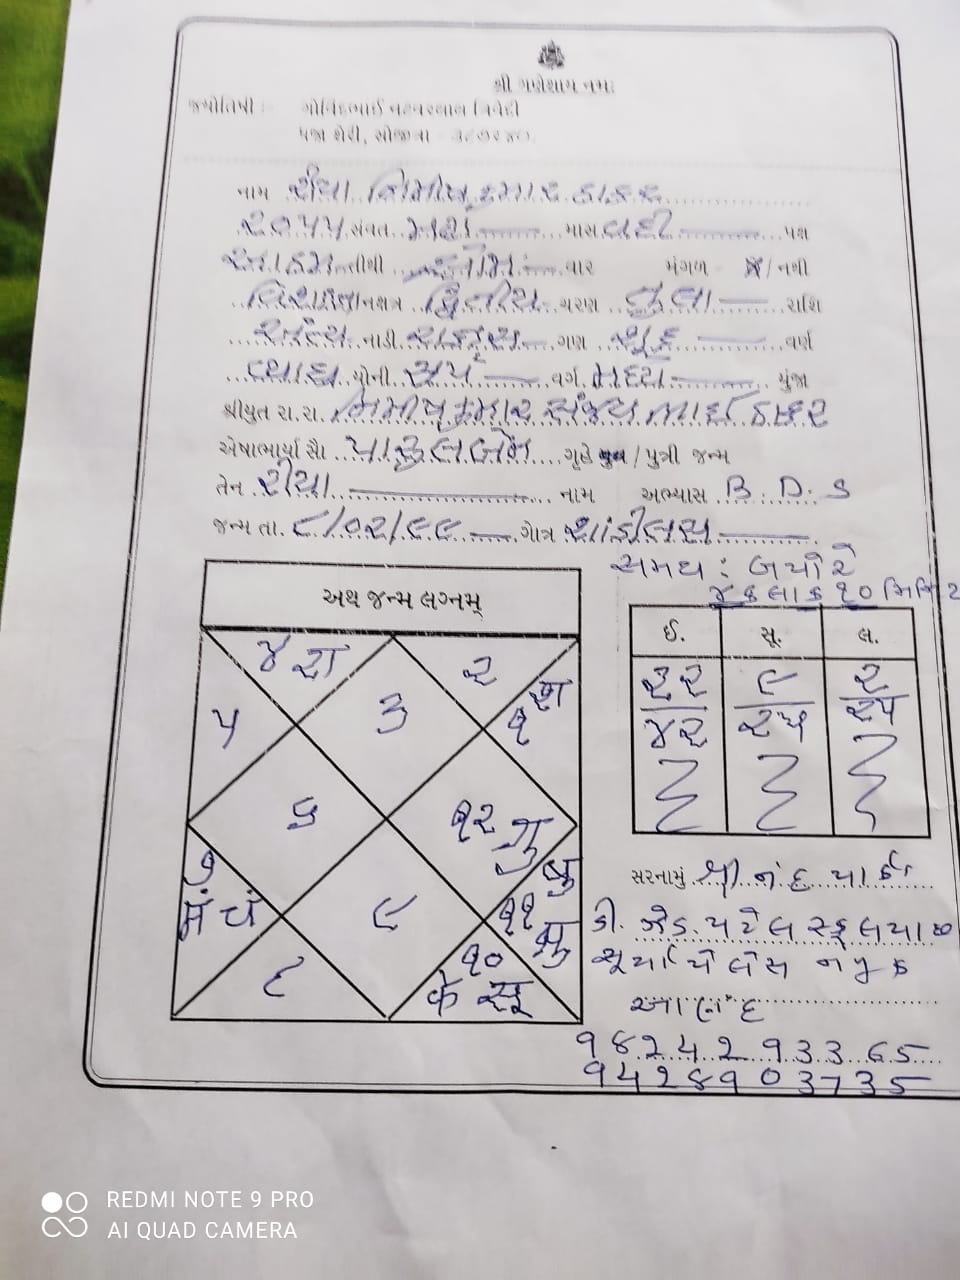 શ્રી ગણેશાય નમઃ
જ્યોતિષી :- ગોવિંદભાઈ નટવરલાલ ત્રિવેદી
પંજા શેરી, સોજીત્રા - ૩૮૭૨૪૦.
નામ રીયા નિમીષકુમાર ઠાકર
૨૦૫૫ સંવત માસ વદી પક્ષ
આઠમ તીથી સોમ વાર મંગળ છે/નથી
વિશાખા નક્ષત્ર દ્વિતીય ચરણ તુલા રાશિ
અંત્ય નાડી રાક્ષસ ગણ શુદ્ર વર્ણ
વ્યાઘ્ર યોની સર્પ વર્ગ મધ્ય યુંજા
શ્રીયુત રા.રા. નિમીષકુમાર સંજય ભાઈ ઠાકર
એષાભાર્યા સૌ પારૂલબેન ગૃહે પુત્ર / પુત્રી જન્મ
તેન રીયા નામ અભ્યાસ B.D.S
જન્મ તા. ૮/૦૨/૯૯ ગોત્ર શાંડીલ્ય
સમય : બપોરે
૪ કલાક ૧૦ મિનિટ
અથ જન્મ લગ્નમ્
ઈ. સૂ. લ.
૨૨ ૯ ૨
૪૨ ૨૫ ૨૫
૪ રા
૨
શ
૧
૫
૩
૬
૧૨ ગુ
શુ
૭
મં ચં
૯
૧૧
બુ
૮
૧૦
કે સૂ
સરનામું શ્રી નંદ પાર્ક
ડી. ઝેડ. પટેલ સ્કૂલ પાછળ
સૂર્યા પેલેસ નજીક
આણંદ
98242 93365
9428903735
REDMI NOTE 9 PRO
AI QUAD CAMERA